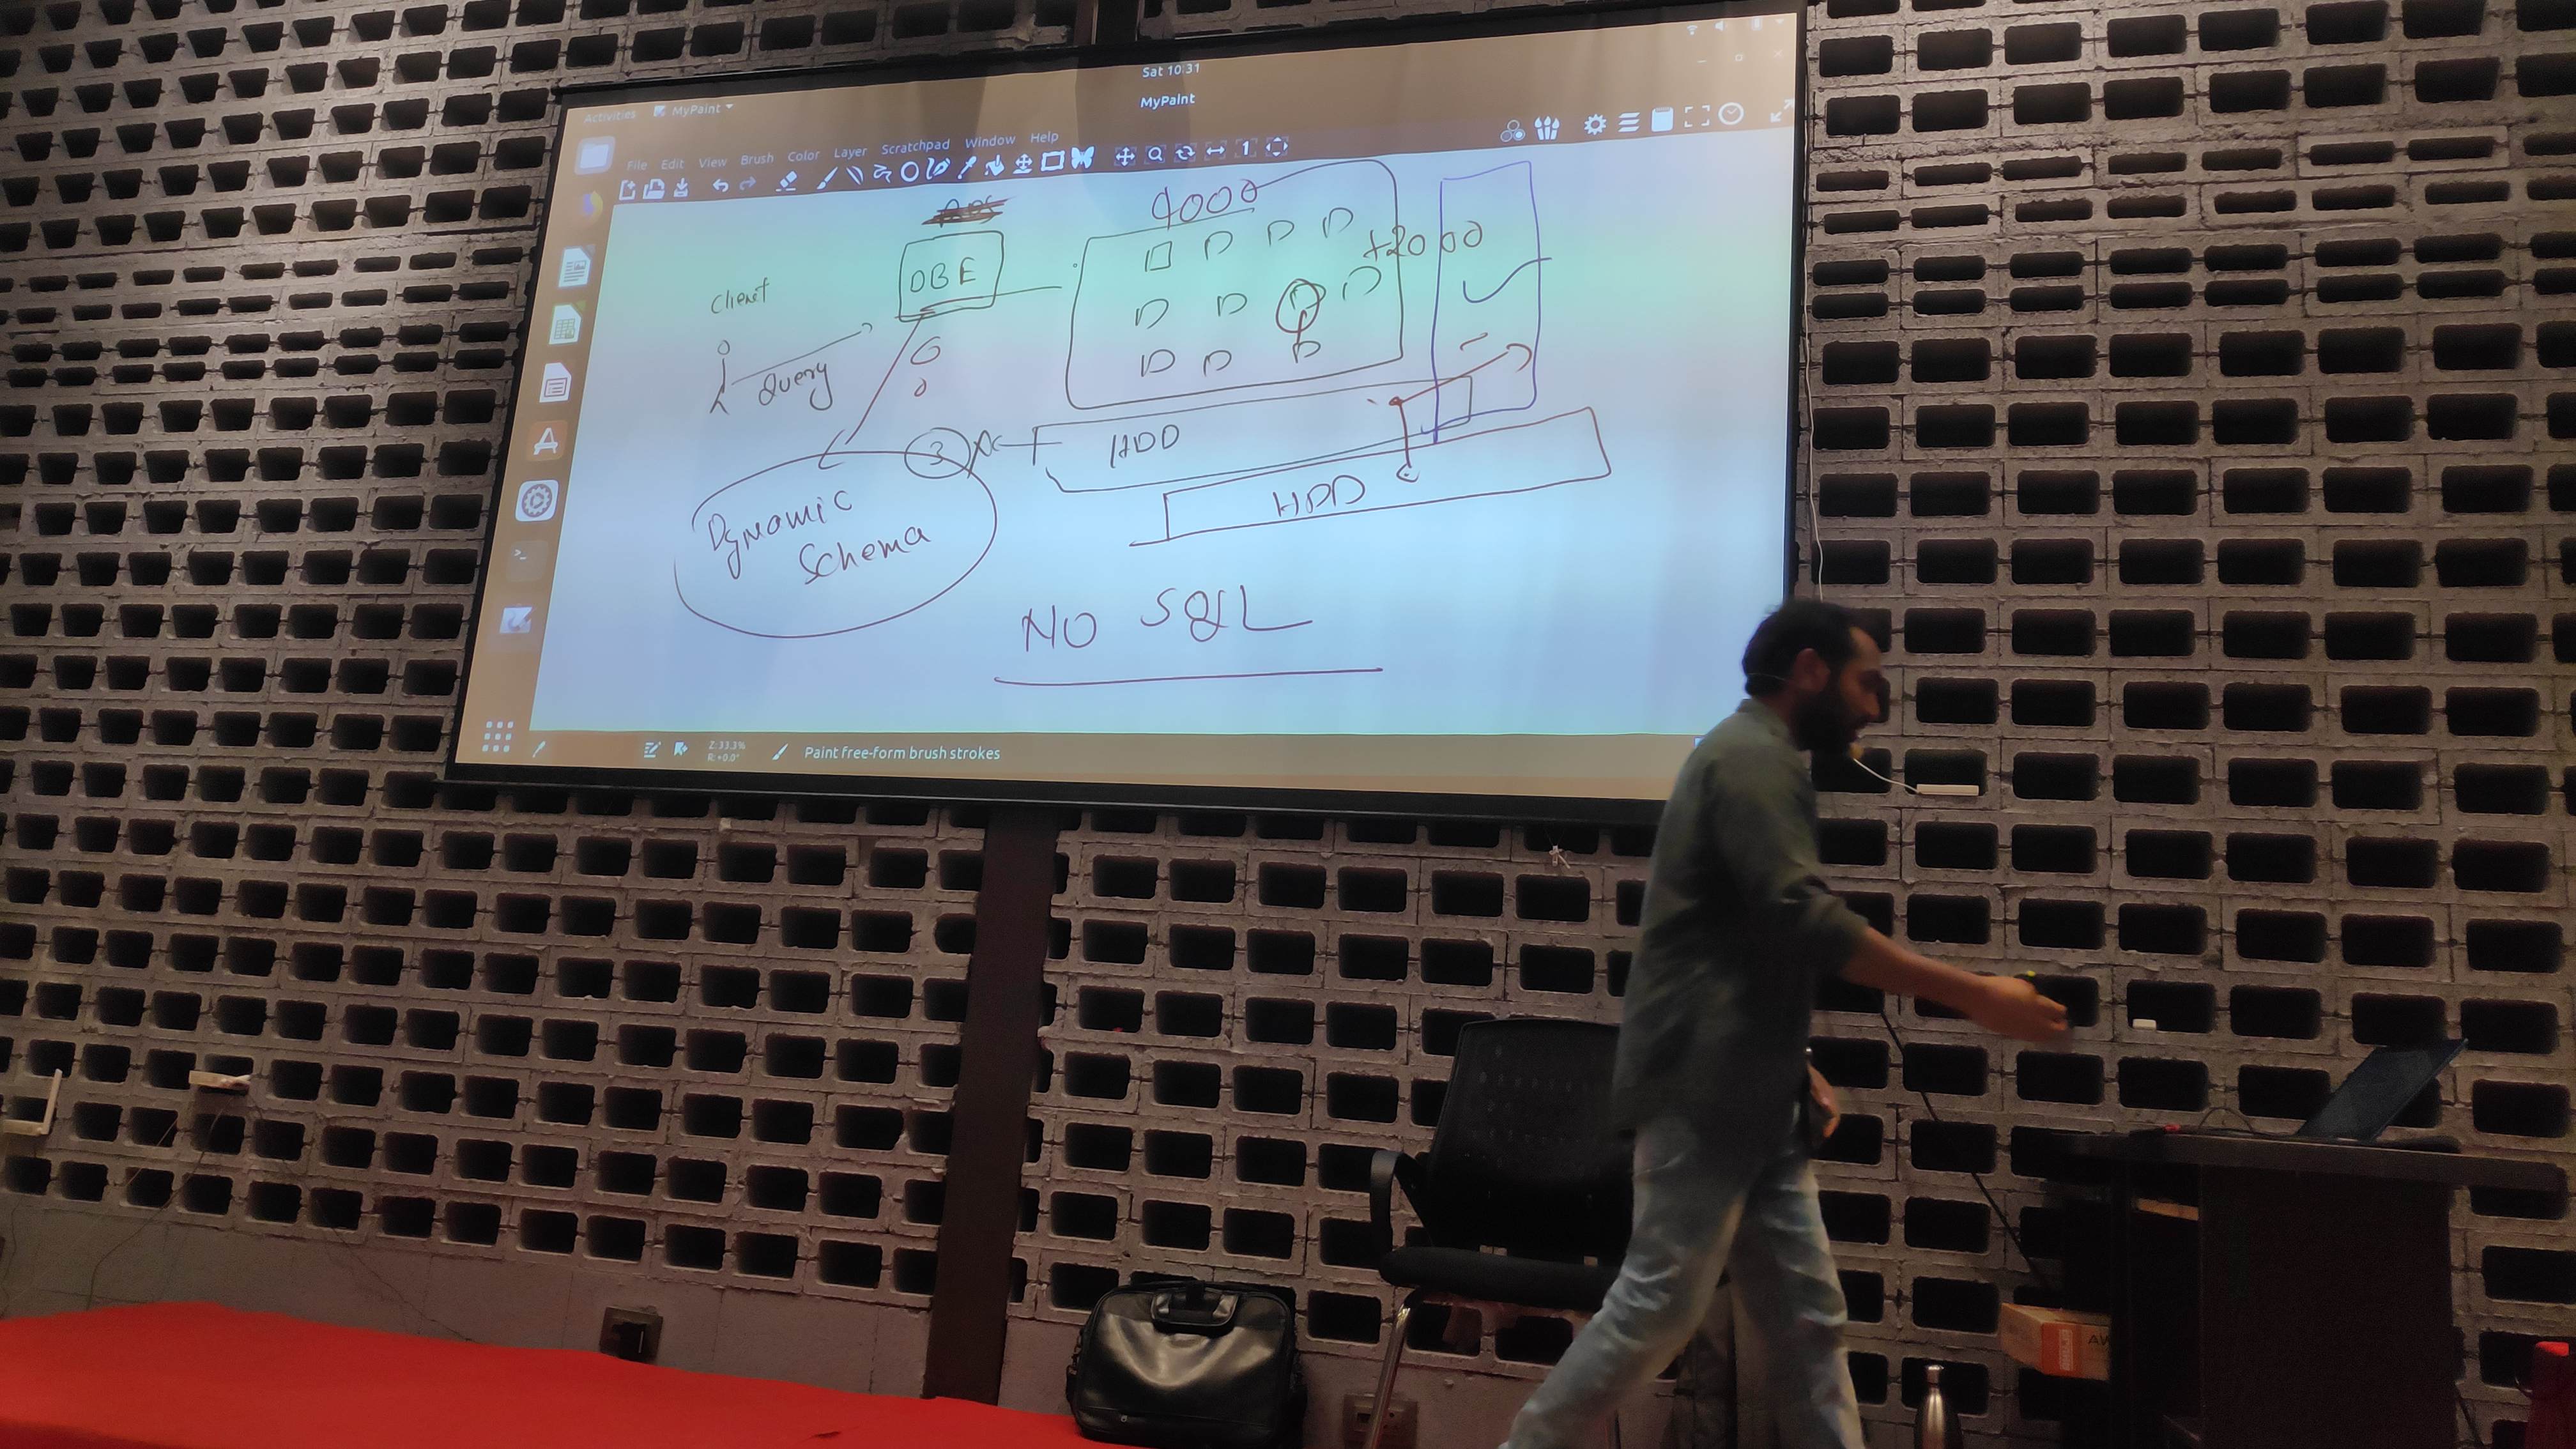 Sat 10:31
Activities MyPaint
MyPaint
File Edit View Brush Color Layer Scratchpad Window Help
4000
+2000
DBE
Client
Query
3
HDD
HDD
Dynamic
Schema
NO SQL
Z: 33.3%
R: +0.0°
Paint free-form brush strokes